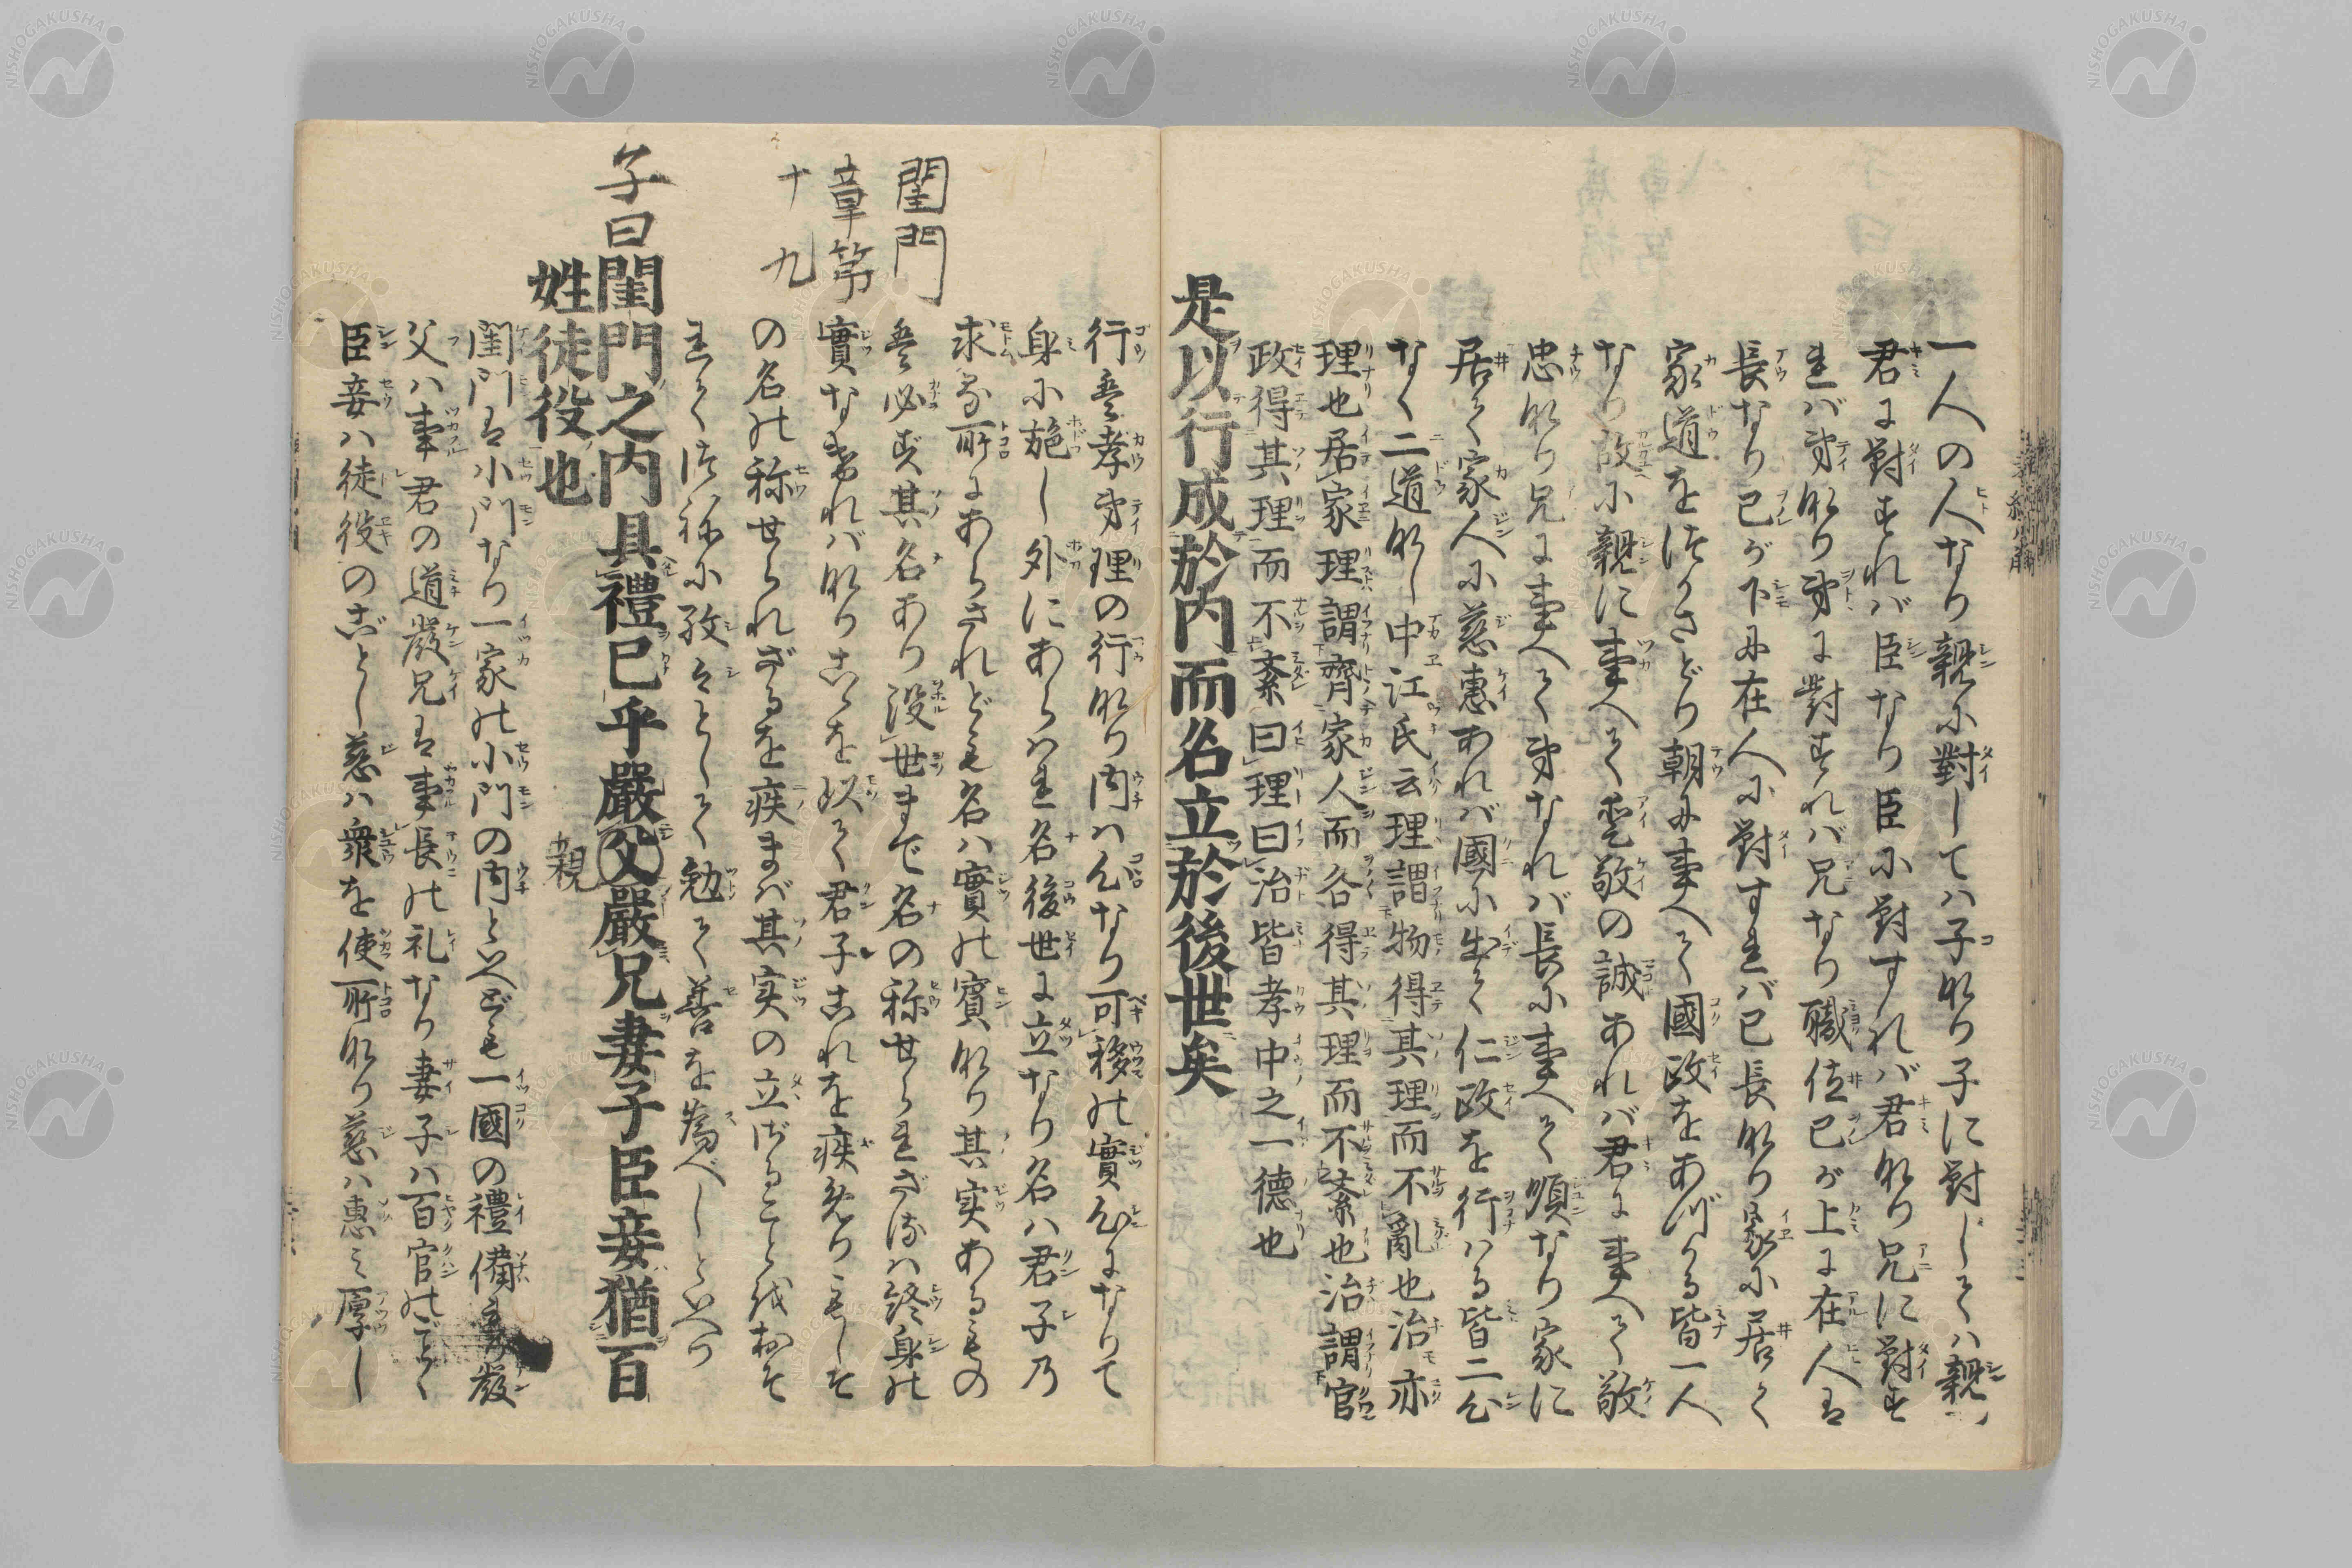 一人の人なり親に對しては子なり子に對しては親
君に對すれば臣なり臣に對すれば君なり兄に對す
れバ弟なり弟に對すれバ兄なり職位己が上に在人は
長なり己が下に在人に對すれバ己長なり家に居て
家道をつかさどり朝に事へて國政をあづかる皆一人
なり故に親に事へて愛敬の誠あれバ君に事へて敬
忠なり兄に事へて弟なれバ長に事へて順なり家に
居て家人に慈惠あれバ國に出て仁政を行ハる皆二心
なく二道なし中江氏云理謂物得其理而不亂也治亦
理也居家理謂齊家人而各得其理而不紊也治謂官
政得其理而不紊曰理曰治皆孝中之一德也
是以行成於内而名立於後世矣
行は孝弟理の行なり内ハ心なり可移の實心になりて
身に施し外にあらハれ名後世に立なり名ハ君子乃
求る所にあらされども名ハ實の賓なり其実あるもの
は必ず其名あり没世まで名の称せられざるハ終身の
實なければなりこゝを以て君子これを疾めりもしそ
の名の称せられざるを疾まば其実の立ざることをおそ
れてつねに孜々として勉て善を為べしといへり
閨門
章第
十九
子曰閨門之内具禮已乎嚴父嚴兄妻子臣妾猶百
親
姓徒役也
閨門は小門なり一家の小門の内といへども一國の禮備る嚴
父ハ事君の道嚴兄は事長の礼なり妻子ハ百官のごとく
臣妾ハ徒役のごとし慈ハ衆を使所なり慈ハ惠ミ厚し